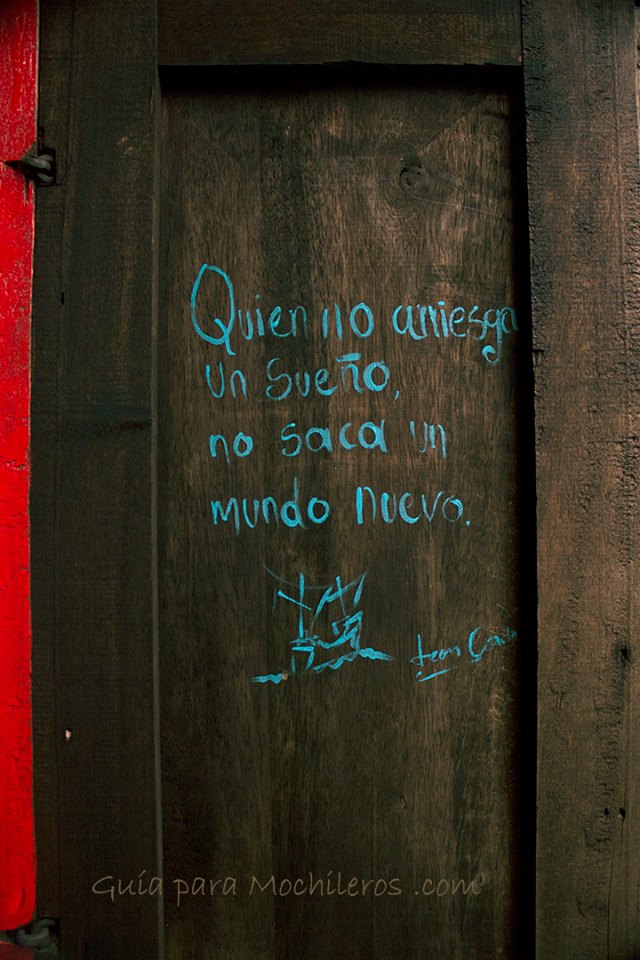 Quien no arriesga
un sueño,
no saca un
mundo nuevo.
Guía para Mochileros .com